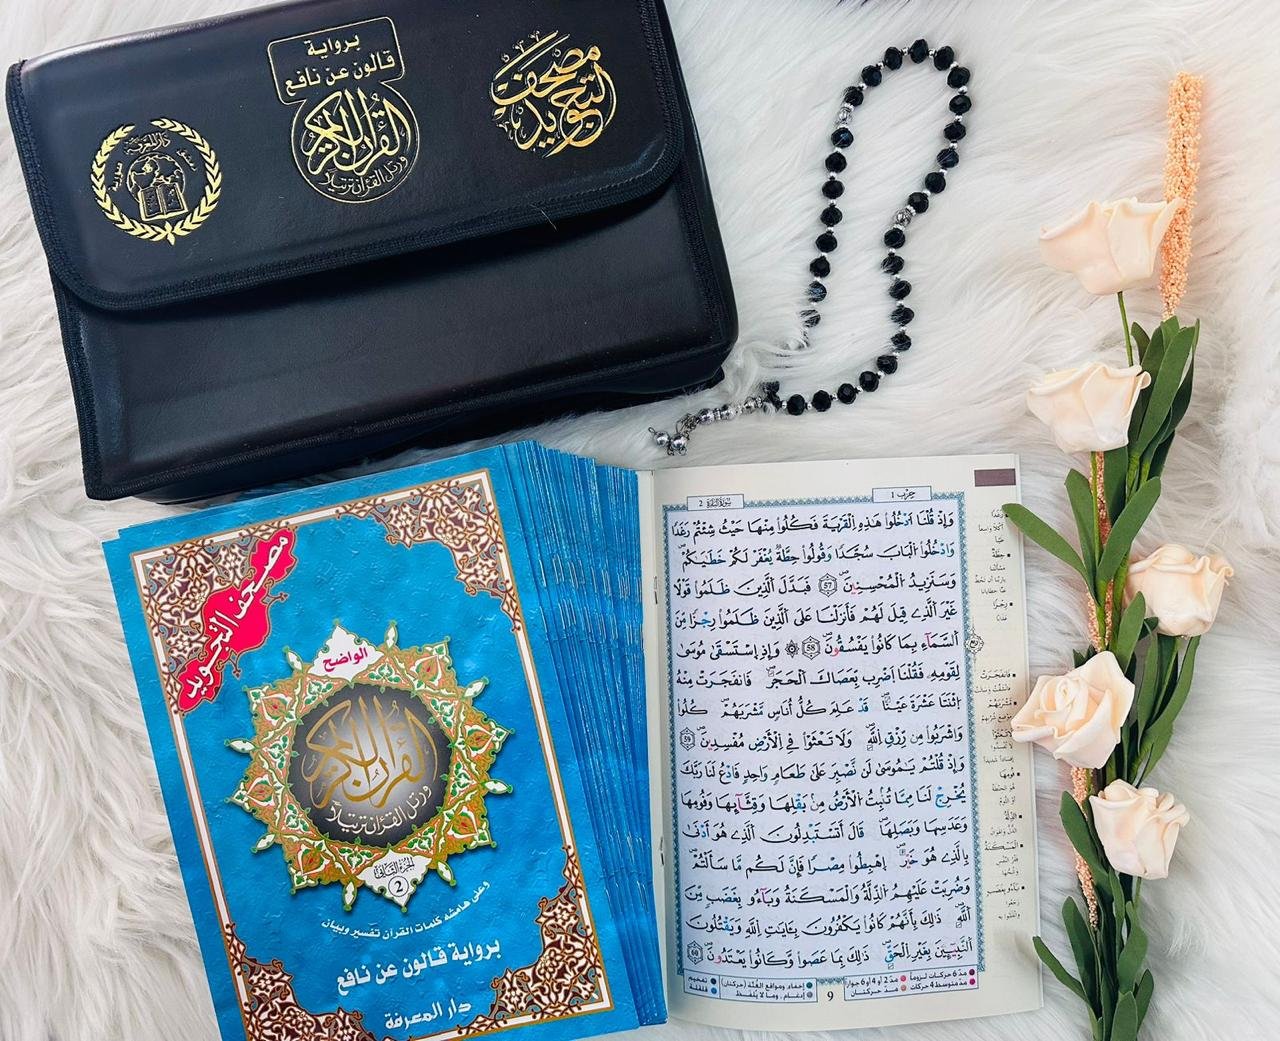 برواية
قالون عن نافع
القرآن الكريم
ورتل القرآن ترتيلاً
مصحف
التجويد
دار المعرفة
دمشق
سورية
مصحف التجويد
الواضح
القرآن الكريم
ورتل القرآن ترتيلاً
الجزء الثاني
2
وعلى هامشه كلمات القرآن تفسير وبيان
برواية قالون عن نافع
دار المعرفة
حزب 1
سورة البقرة 2
وَإِذْ قُلْنَا ادْخُلُوا هَٰذِهِ اِلْقَرْيَةَ فَكُلُوا مِنْهَا حَيْثُ شِئْتُمْ رَغَدًا
وَادْخُلُوا الْبَابَ سُجَّدًا وَقُولُوا حِطَّةٌ يُغْفَرْ لَكُمْ خَطَٰيَٰكُمْ
وَسَنَزِيدُ الْمُحْسِنِينَ 57 فَبَدَّلَ الَّذِينَ ظَلَمُوا قَوْلًا
غَيْرَ الَّذِي قِيلَ لَهُمْ فَأَنزَلْنَا عَلَى الَّذِينَ ظَلَمُوا رِجْزًا مِّنَ
اَلسَّمَآءِ بِمَا كَانُوا يَفْسُقُونَ 58 وَإِذِ اِسْتَسْقَىٰ مُوسَىٰ
لِقَوْمِهِ فَقُلْنَا اَضْرِب بِّعَصَاكَ اَلْحَجَرَ فَانفَجَرَتْ مِنْهُ
اَثْنَتَا عَشْرَةَ عَيْنًا قَدْ عَلِمَ كُلُّ أُنَاسٍ مَّشْرَبَهُمْ كُلُوا
وَاشْرَبُوا مِن رِّزْقِ اِللَّهِ وَلَا تَعْثَوْا فِي اِلْأَرْضِ مُفْسِدِينَ 59
وَإِذْ قُلْتُمْ يَٰمُوسَىٰ لَن نَّصْبِرَ عَلَىٰ طَعَامٍ وَاحِدٍ فَادْعُ لَنَا رَبَّكَ
يُخْرِجْ لَنَا مِمَّا تُنۢبِتُ اُلْأَرْضُ مِنۢ بَقْلِهَا وَقِثَّآئِهَا وَفُومِهَا
وَعَدَسِهَا وَبَصَلِهَا قَالَ أَتَسْتَبْدِلُونَ اَلَّذِي هُوَ أَدْنَىٰ
بِالَّذِي هُوَ خَيْرٌ اِهْبِطُوا مِصْرًا فَإِنَّ لَكُم مَّا سَأَلْتُمْ
وَضُرِبَتْ عَلَيْهِمُ اُلذِّلَّةُ وَالْمَسْكَنَةُ وَبَآءُو بِغَضَبٍ مِّنَ
اَللَّهِ ذَٰلِكَ بِأَنَّهُمْ كَانُوا يَكْفُرُونَ بِـَٔايَٰتِ اِللَّهِ وَيَقْتُلُونَ
اَلنَّبِيٓـِٔينَ بِغَيْرِ اِلْحَقِّ ذَٰلِكَ بِمَا عَصَوا وَّكَانُوا يَعْتَدُونَ 60
ربع
رغدا
حطة
رجزا
فانفجرت
مشربهم
فومها
الذلة
المسكنة
باءو بغضب
مدّ 6 حركات لزوماً مدّ 2 أو 4 أو 6 جوازاً
مدّ متوسط 4 حركات مدّ حركتان
إخفاء، ومواقع الغُنَّة (حركتان)
إدغام، وما لا يُلفَظ
تفخيم
قلقلة
9